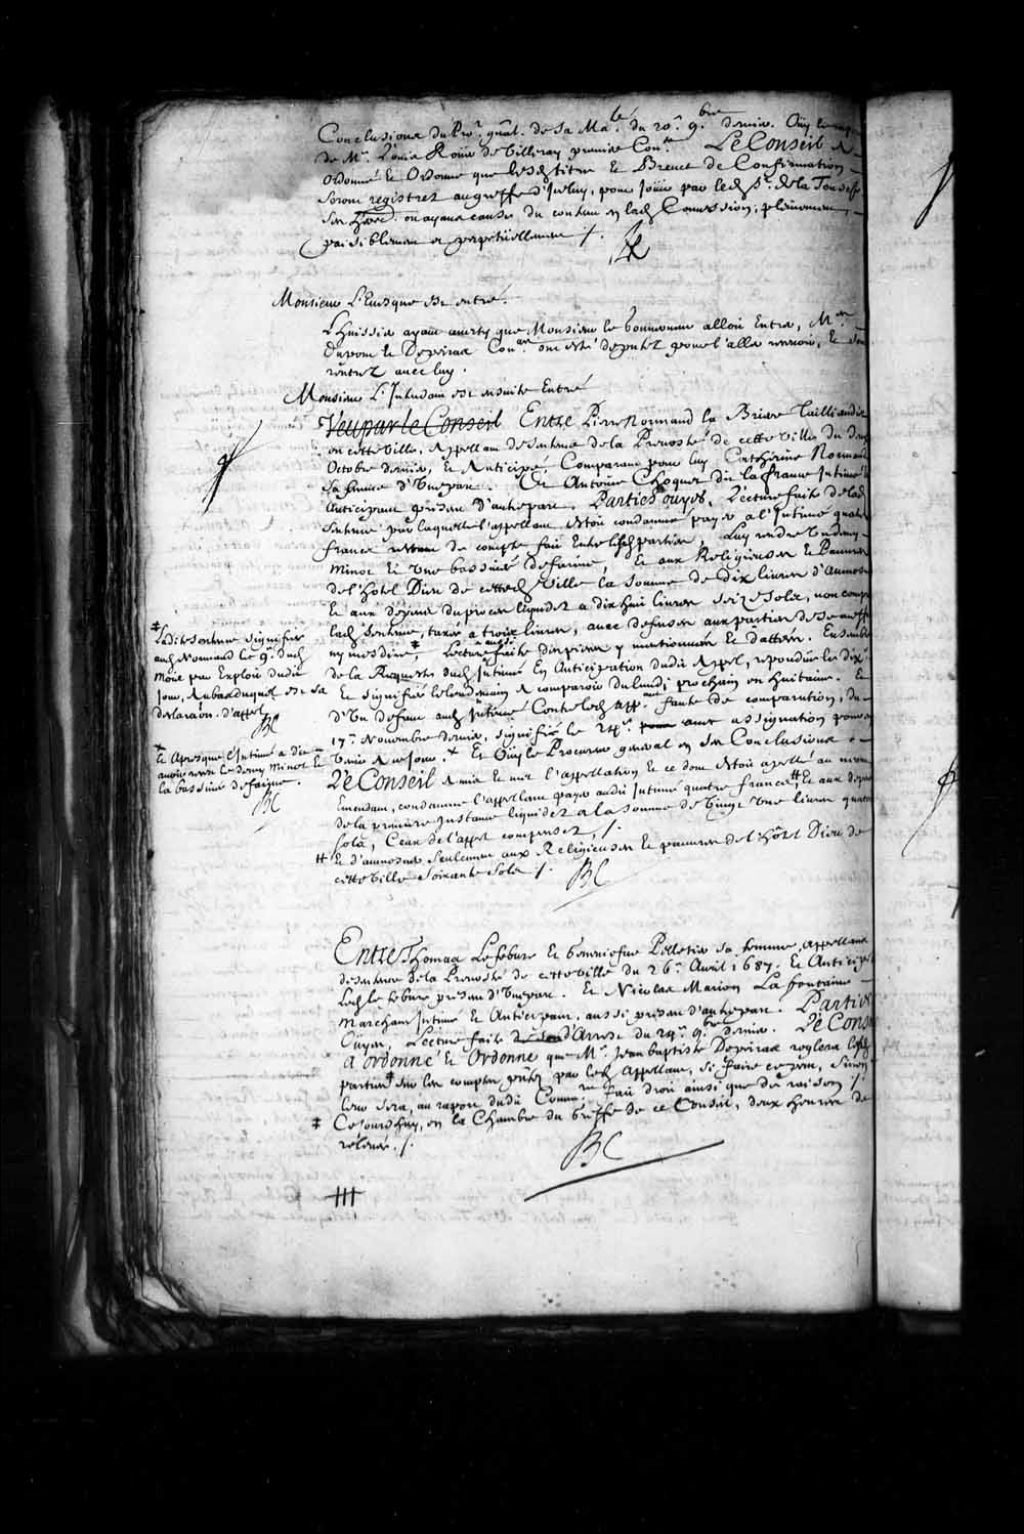 Conclusions du Procr. gnāl. de Sa Ma.té du 20e. 9.bre dernier. Oüy le
de Mr. Loüis Roüer de Villeray premier Con.er Le Conseil A
Ordonné Et Ordonne que lesd. titre Et Brevet de Confirmation
Seront registrez au greffe d'Iceluy, pour Joüir par led. Sr. de la
Ses Hoirs ou ayans cause du contenu en lad. Concession, plainement
paisiblement et perpetüellement ./.
Monsieur L'Evesque est entré.
L'huissier ayant averty que Monsieur le Gouverneur alloit Entrer, M.rs
Dupont Et Depeiras Con.ers ont esté deputez pour l'aller recevoir, Et sont
rentrez avec luy.
Monsieur L'Intendant est ensuite Entré
Veu par le Conseil Entre Pierre Normand la Briere Taillandier
en cette Ville, Appellant de sentence de la Prevosté de cette Ville du
Octobre dernier, Et Anticipé, Comparant pour luy Catherine Normand
sa femme d'Une part. Et Antoine Choquet dit la france Intimé
Anticipant present d'autre part. Parties ouyes, Lecture faite de lad.
Sentence par laquelle l'appellant Estoit condamné payer a l'Intimé quatre
francs restans de compte fait Entre lesd. parties, Luy rendre Un demy
Minot Et Une bassiné de farine, Et aux Religieuses Et Pauvres
de l'hotel Dieu de cetted. Ville la somme de dix livres d'aumosne
Et aux depens du proces liquidez a dix huit livres seize sols, non compris
lad. Sentence, taxée a trois livres, avec defenses aux parties de se meffaire
ny mesdire, ‡ Lecture aussi faite des pieces y mentionnées Et dattées. Ensemble
de la Requeste dud. Intimé En Anticipation dudit Appel, repondüe le dix.e
Et signifiée le lendemain A comparoir du lundi prochain en huitaine. Et
d'Un defaut aud. Intimé Contre led. app.ant faute de comparution, du
17.e Novembre dernier, signifié le 24.e avec assignation pour
Venir A ce Jour. × Et Oüy le Procureur general en Ses Conclusions
Le Conseil A mis Et met l'appellation Et ce dont Estoit apellé au neant
Emendant, condamne l'appellant payer audit Intimé quatre francs, ‡‡ Et aux depens
de la premiere Instance liquidez a la Somme de Vingt Une livres quatre
sols, Ceux de l'appel compensez, ./.
‡‡ Et d'aumosner seulement aux Religieuses Et pauvres de l'hôtel Dieu de
cette Ville soixante sols ./.
BC
‡
Ladite Sentence signifiée
aud. Normand le 9.e dud.
Mois par Exploit dudit
Jour, Au bas duquel est sa
declaraōn d'appel
BC
×
Et Apres que l'Intimé a dit
avoir receu le demy Minot Et
la bassiné de farine.
BC
Entre Thomas Lefebure Et Genevieve Pelletier sa femme, Appellans
de sentence de la Prevosté de cette Ville du 26.e Avril 1687. Et Anticipez
Led. le febure present d'Une part. Et Nicolas Marion La fontaine
Marchand Intimé Et Anticipant, aussi present d'autre part. Parties
Ouyes, Lecture faite d'Arrest du 24.e 9.bre dernier. Le Conseil
A ordonné Et Ordonne que M.e Jean baptiste Depeiras reglera lesd.
parties ‡ sur les comptes prñtez par lesd. Appellans, si faire ce peut, Sinon
leur sera, au raport dudit Comm.re Fait droit ainsi que de raison ./.
‡ Cejourd'huy, en la Chambre du Greffe de ce Conseil, deux heures de
relevée. ./.
BC